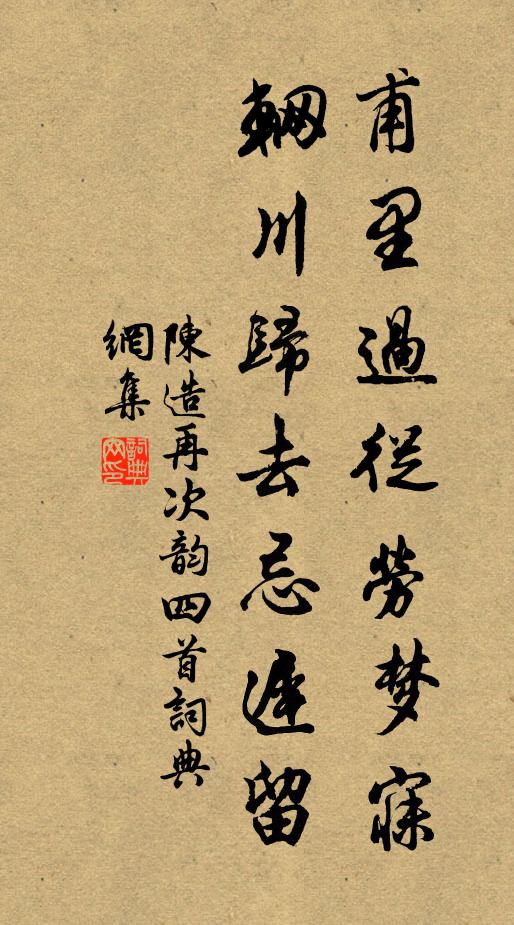 甫里過從勞梦寐
輞川歸去忌遲留
陳造再次韵四首詞典
網集
詞典网印